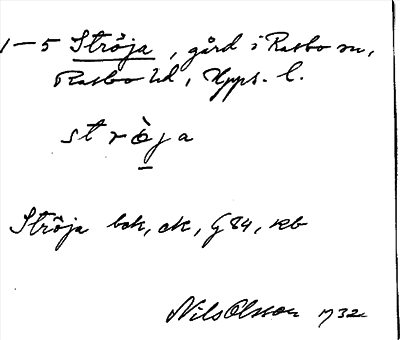 1-5 Ströja, gård i Rasbo sn,
Rasbo hd, Upps. l.
strò̱ja
Ströja bok, ek, G 84, kb
Nils Olsson 1932